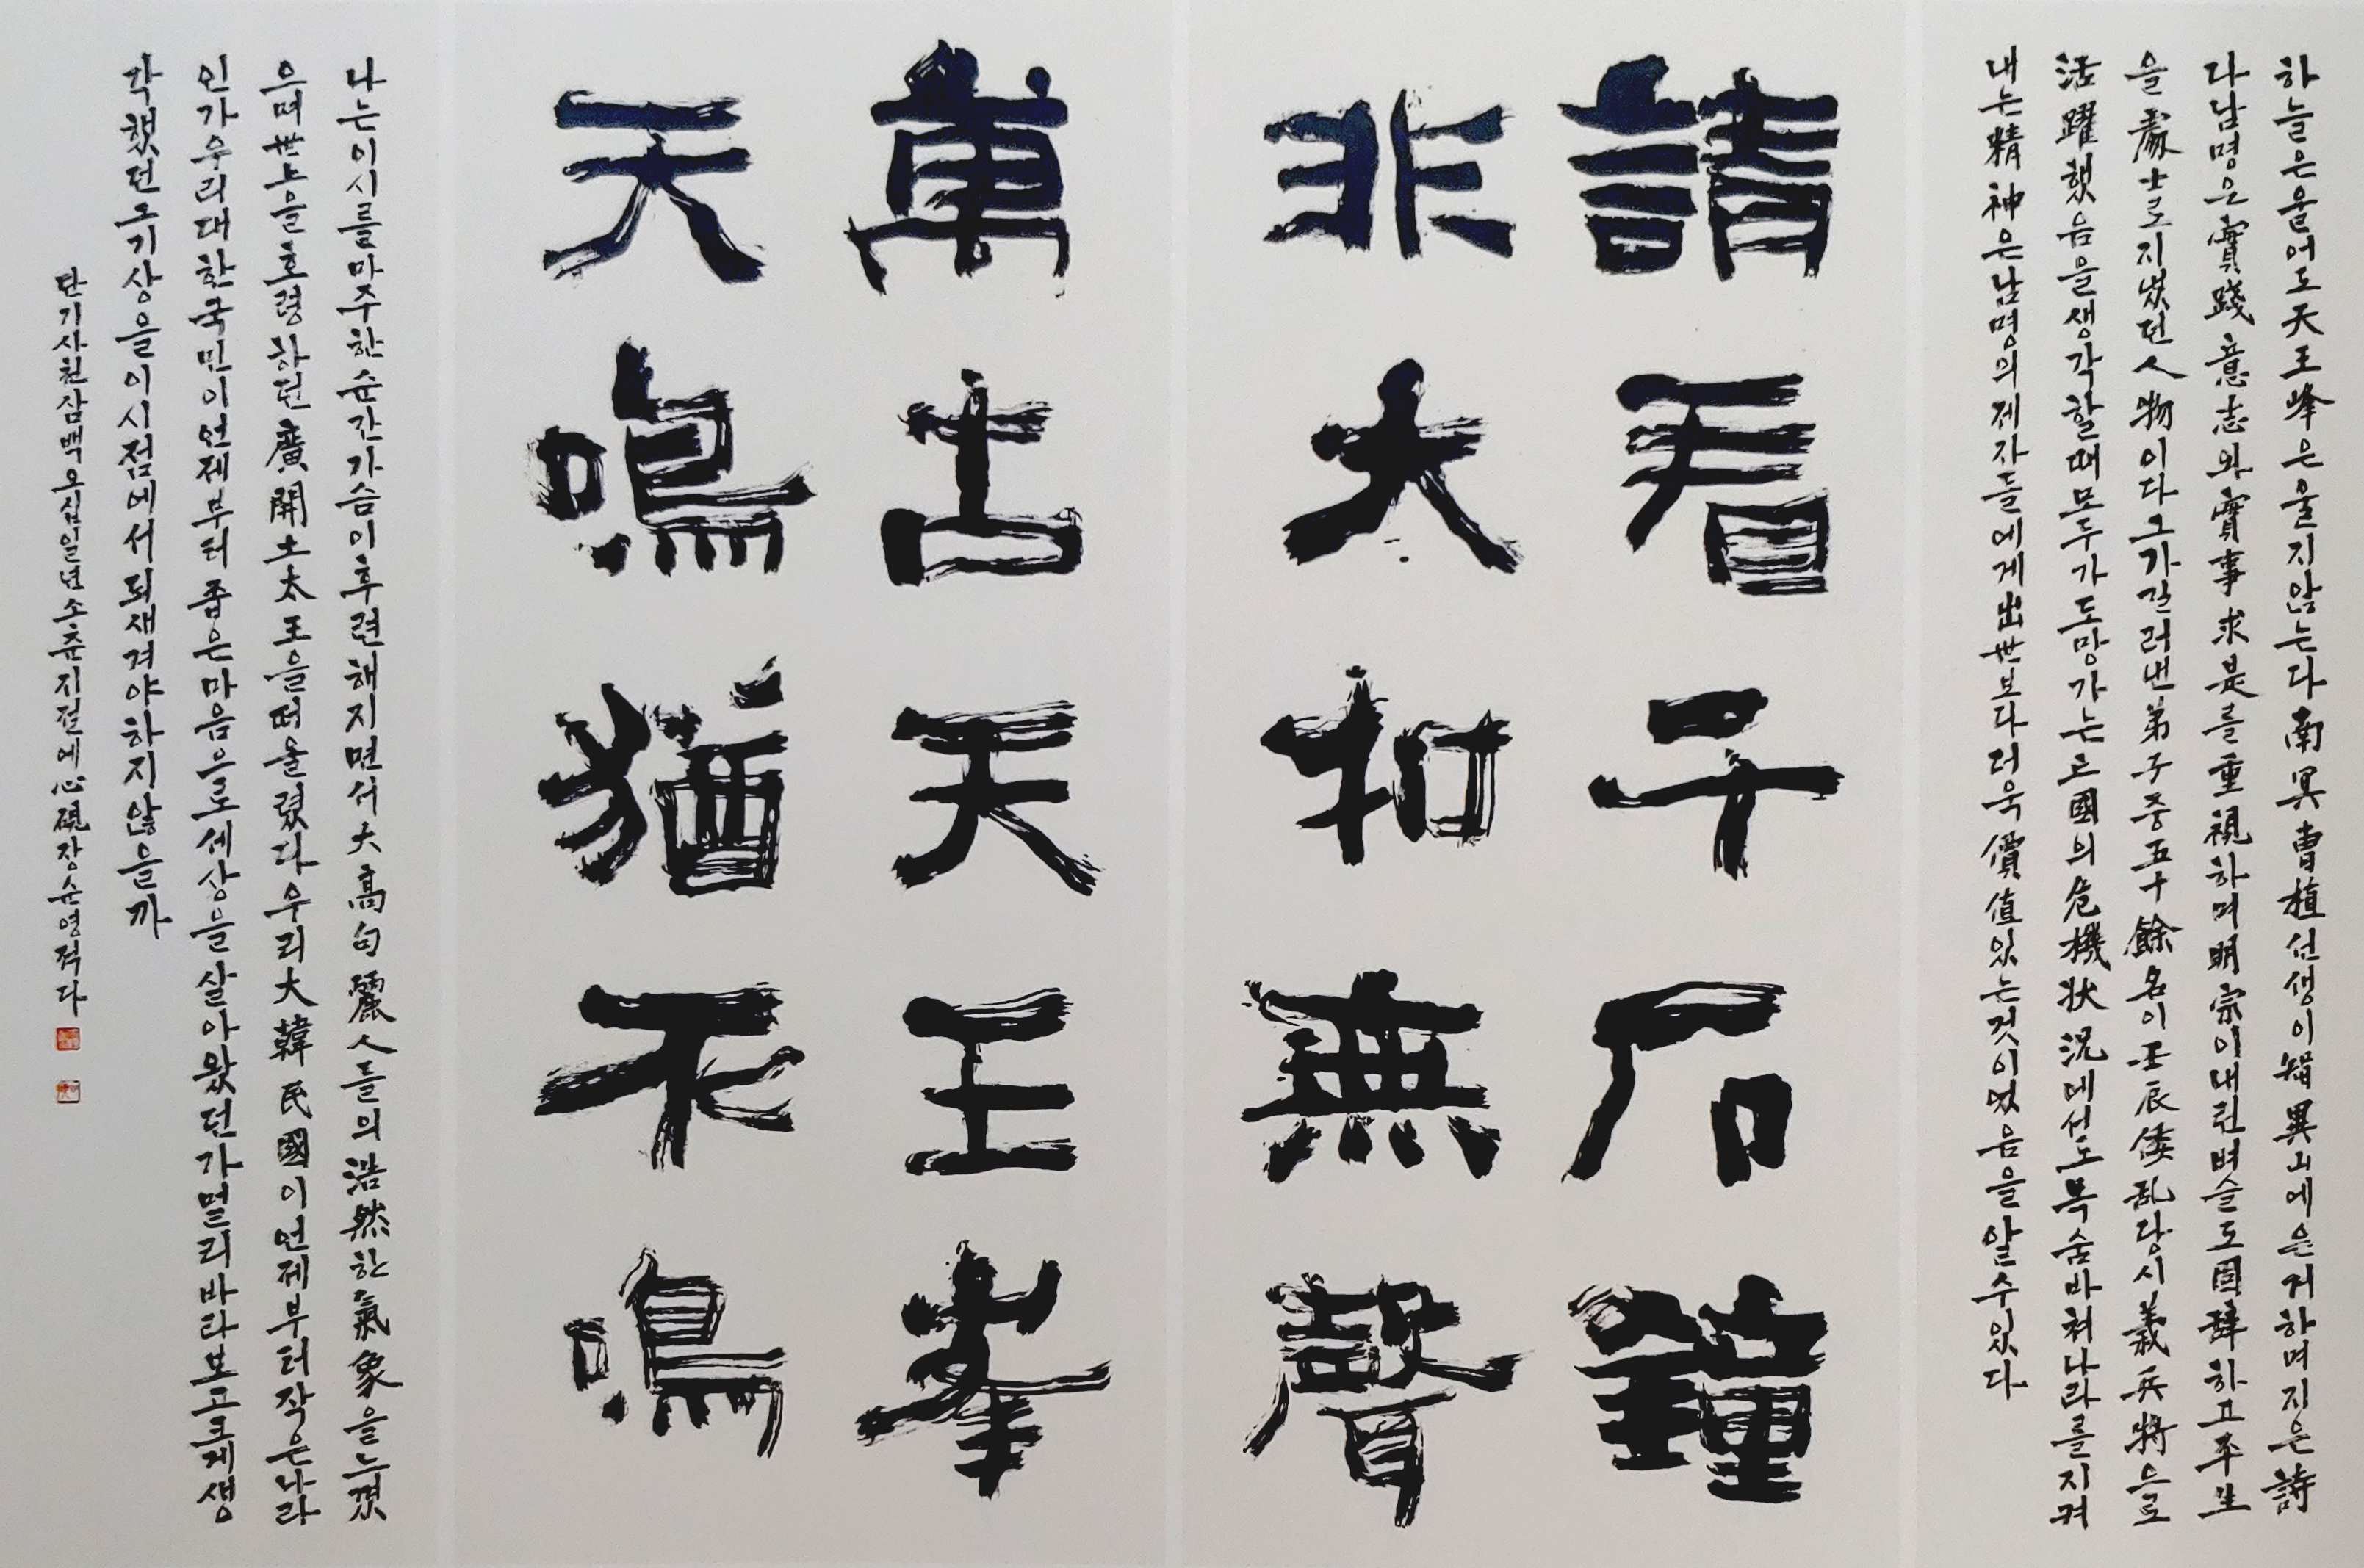 하늘은울어도天王峰은울지않는다南冥曺植선생이智異山에은거하며지은詩
다남명은實踐意志와實事求是를重視하며明宗이내린벼슬도固辭하고平生
을處士로지냈던人物이다그가길러낸弟子중五十餘名이壬辰倭乱당시義兵將으로
活躍했음을생각할때모두가도망가는고國의危機状況에서도목숨바쳐나라를지켜
내는精神은남명의제자들에게出世보다더욱價値있는것이었음을알수있다
請看千石鐘
非大扣無聲
萬古天王峯
天鳴猶不鳴
나는이시를마주한순간가슴이후련해지면서大高句麗人들의浩然한氣象을느꼈
으며世上을호령하던廣開土太王을떠올렸다우리大韓民國이언제부터작은나라
인가우리대한국민이언제부터좁은마음으로세상을살아왔던가멀리바라보고크게생
각했던그기상을이시점에서되새겨야하지않을까
단기사천삼백오십일년소츈지절에心硯장순영적다